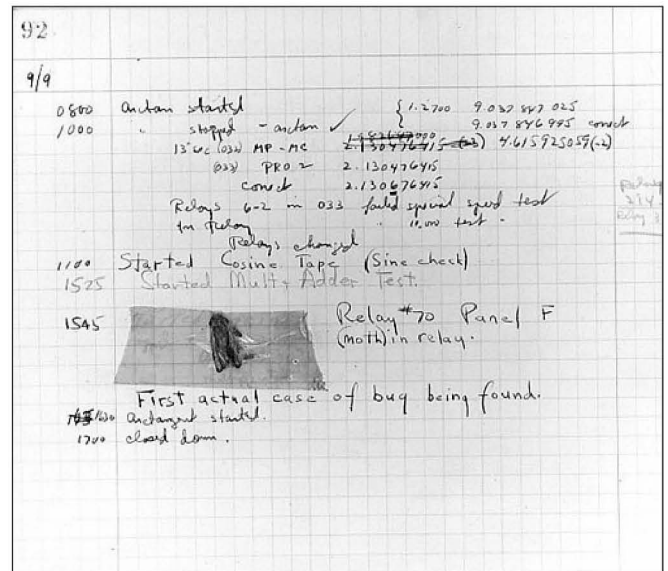 92
9/9
0800 antan started { 1.2700 9.037 847 025
1000 " stopped - antan ✓ 9.037 846 995 correct
13"uc (032) MP - MC 2.130476415 4.615925059(-2)
(033) PRO 2 2.130476415
correct 2.130676415
Relays 6-2 in 033 failed special speed test
in Relay " 10.000 test .
Relays changed
1100 Started Cosine Tape (Sine check)
1525 Started Mult+Adder Test.
1545 Relay #70 Panel F
(moth) in relay.
First actual case of bug being found.
1630 antangent started.
1700 closed down.
Relay